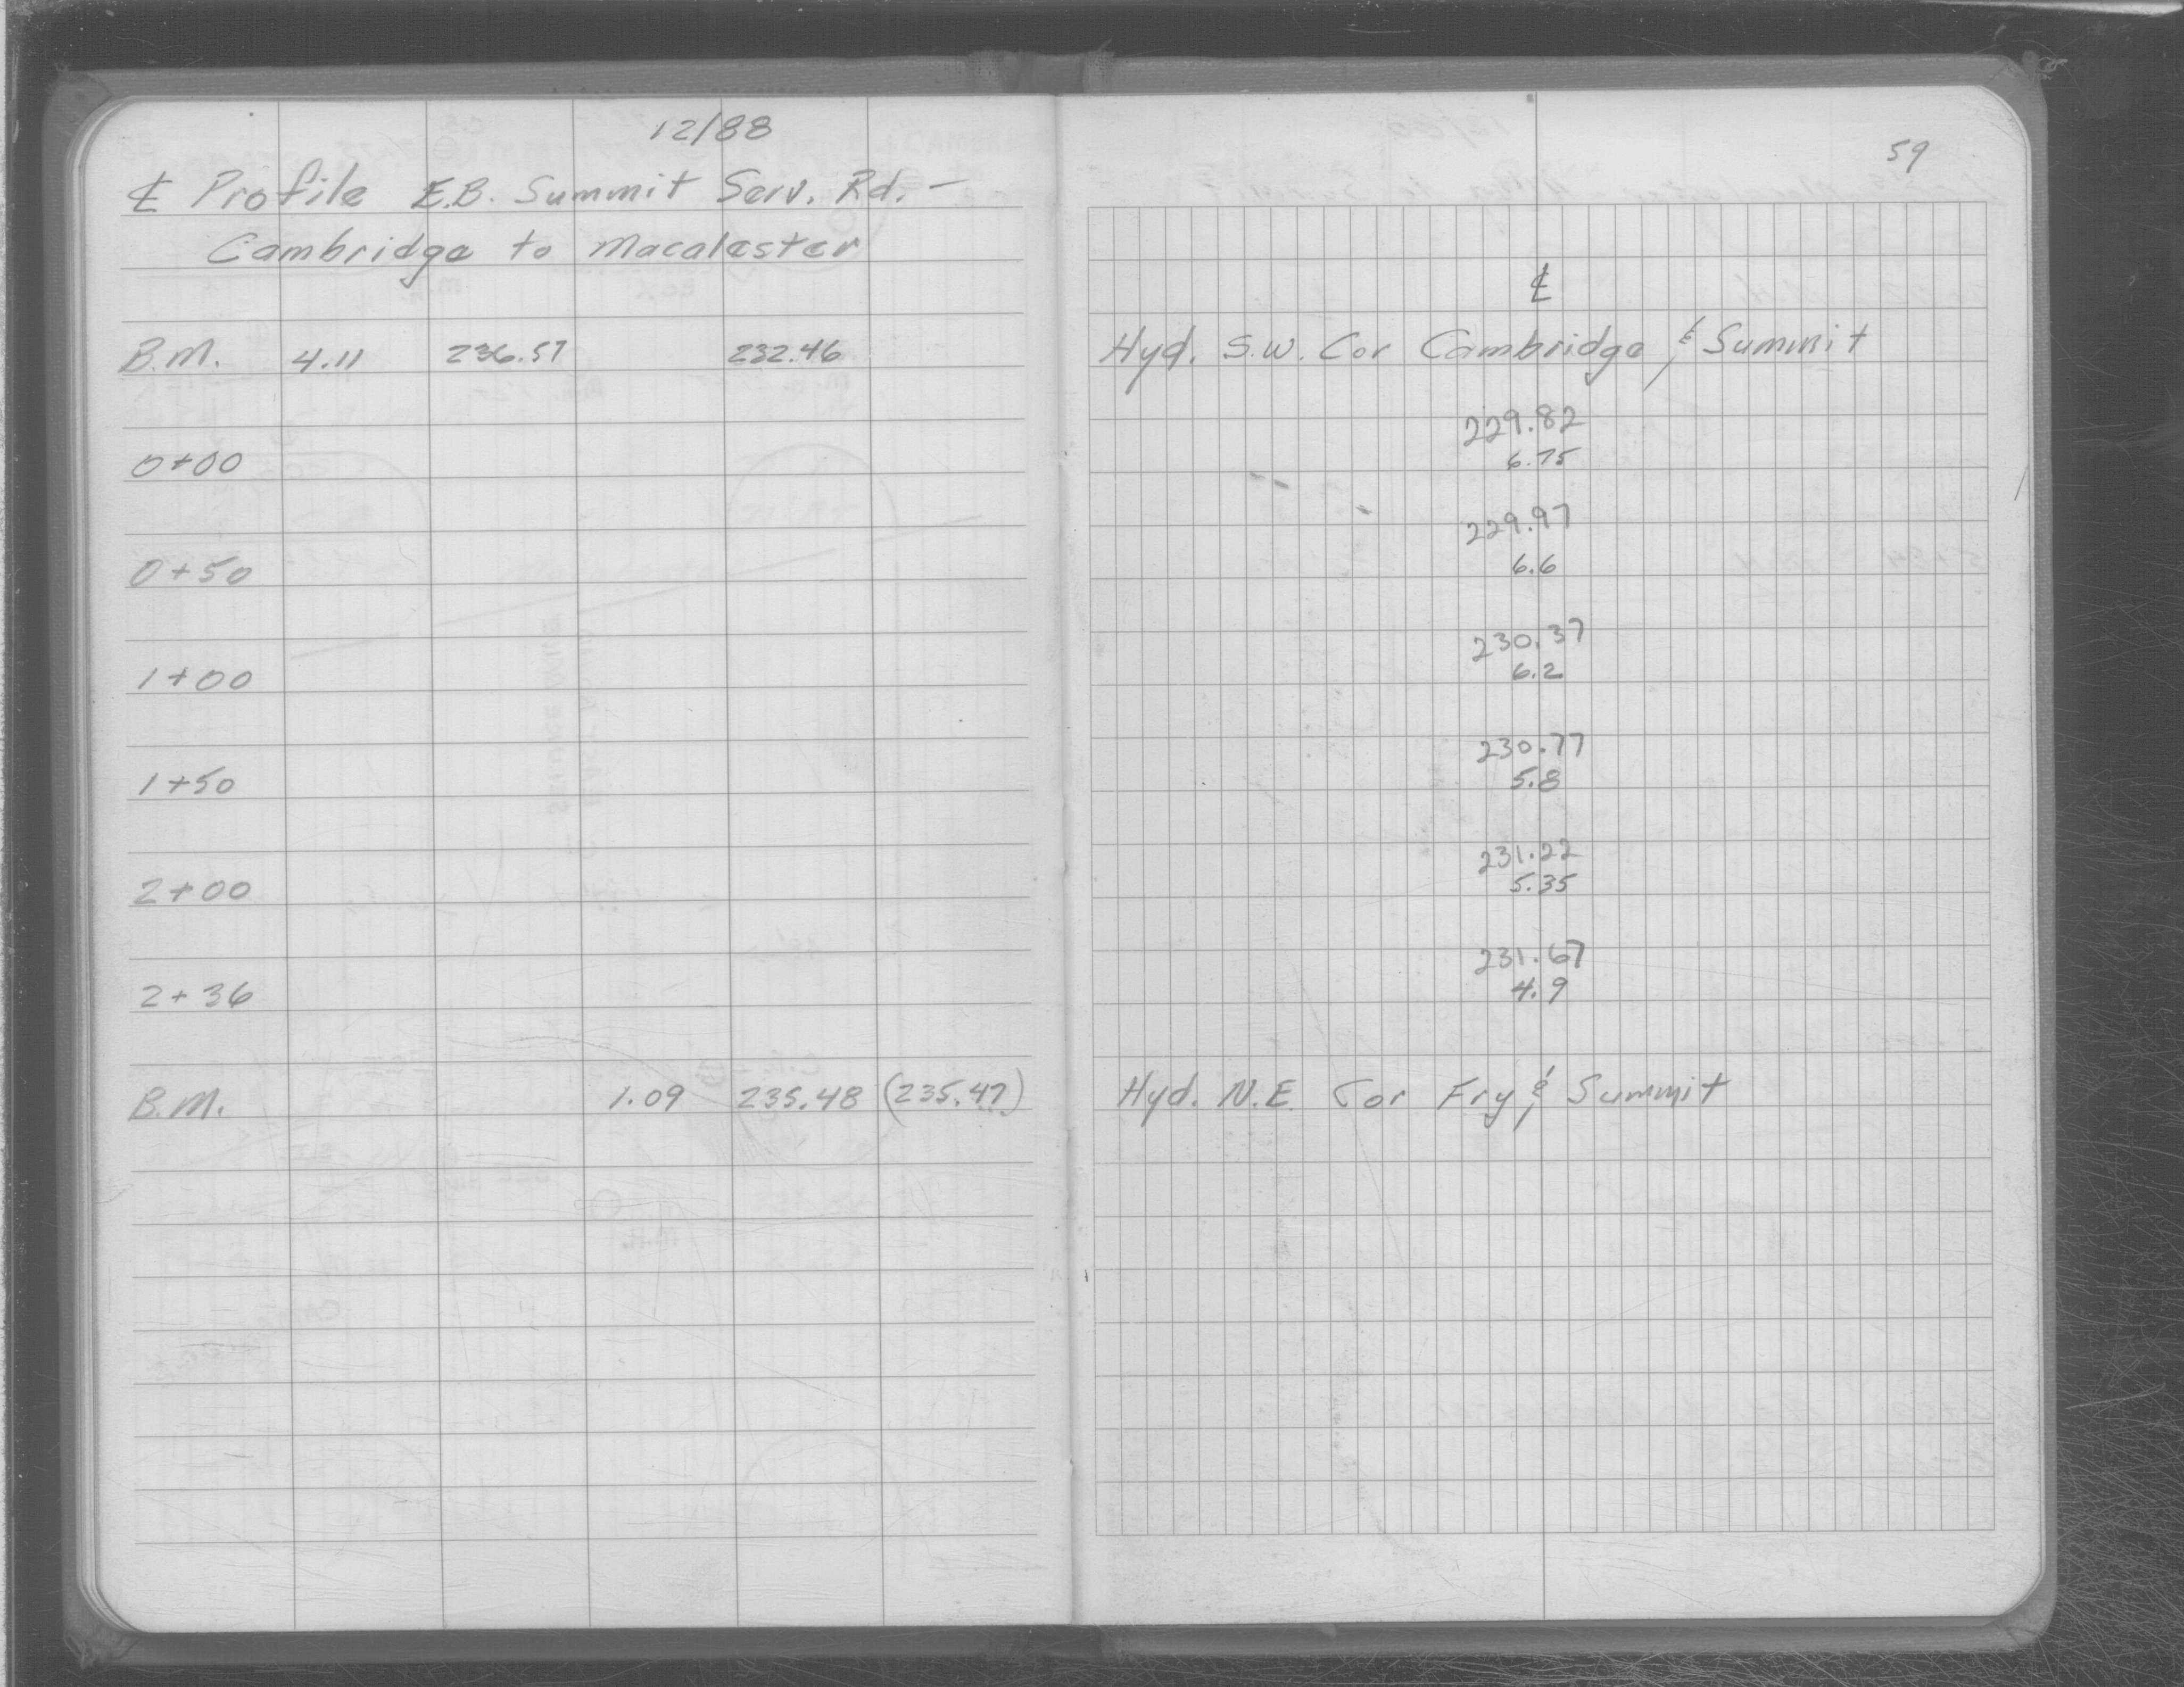 12/88
℄ Profile E.B. Summit Serv. Rd. —
Cambridge to Macalester
B.M. 4.11 236.57 232.46
0+00
0+50
1+00
1+50
2+00
2+36
B.M. 1.09 235.48 (235.47)
59
℄
Hyd. S.W. Cor Cambridge & Summit
229.82
6.75
229.97
6.6
230.37
6.2
230.77
5.8
231.22
5.35
231.67
4.9
Hyd. N.E. Cor Fry & Summit